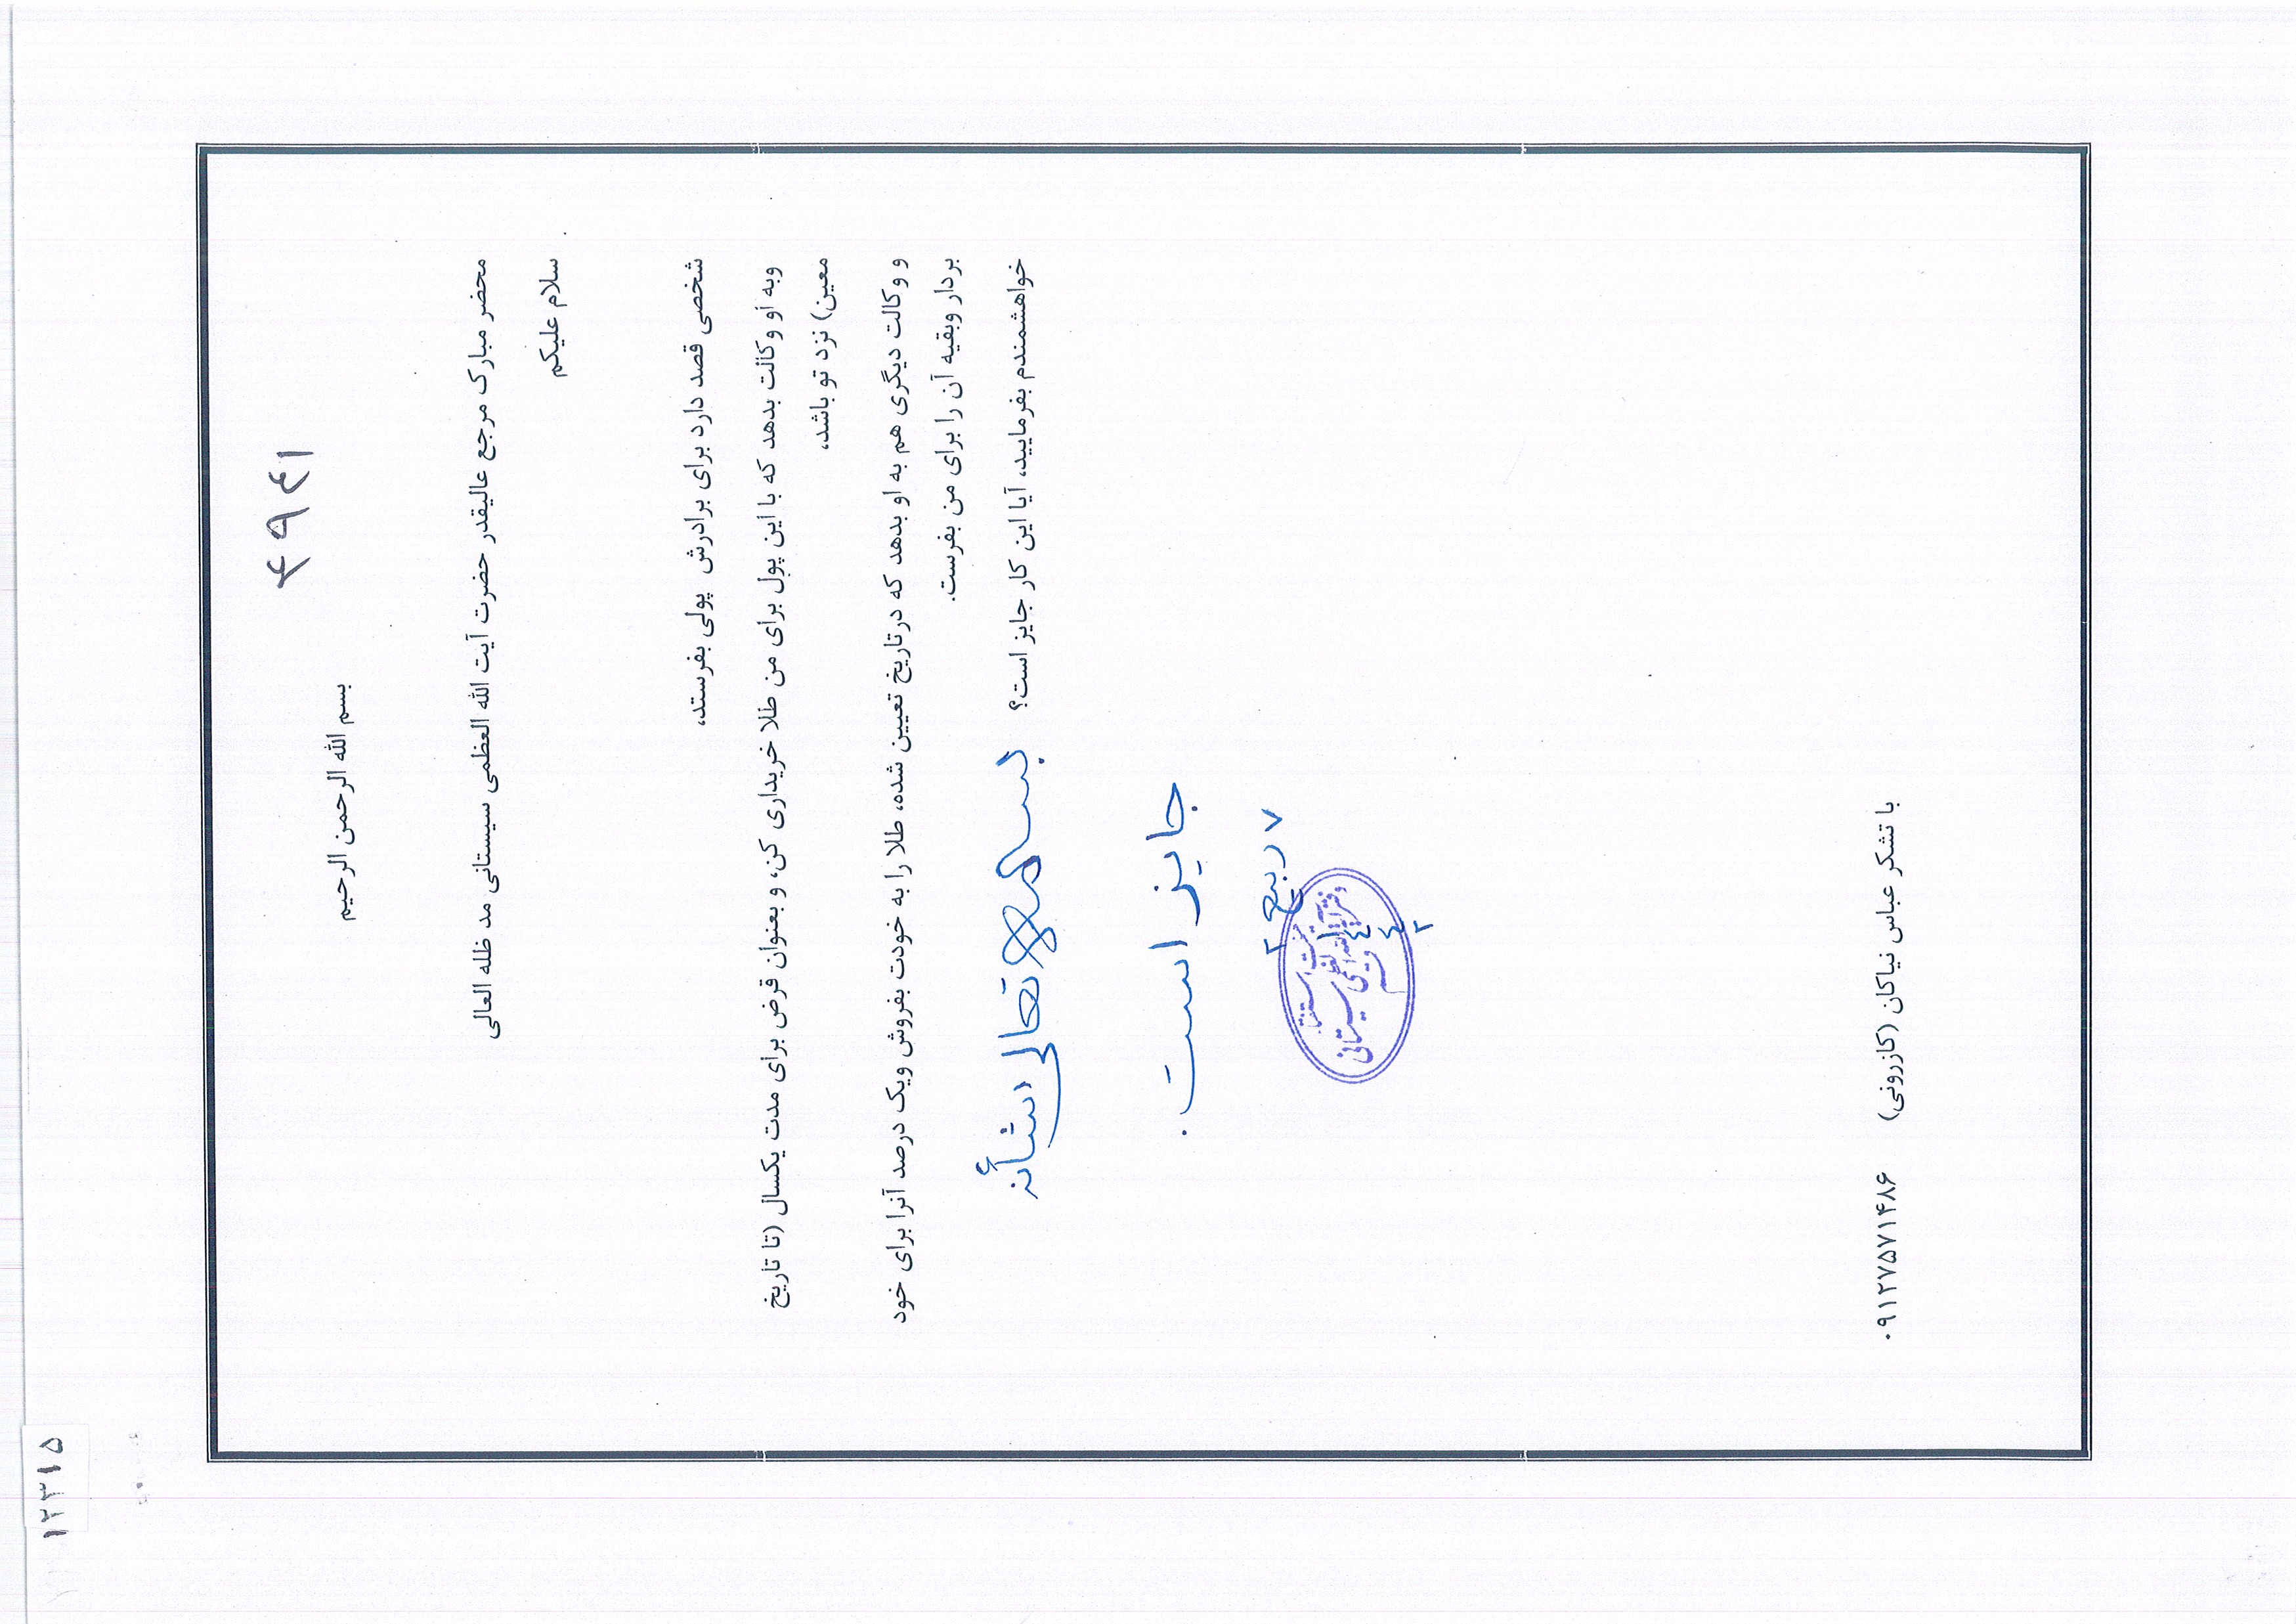 ۱۲۳۱۵
۴۹٤۱
بسم الله الرحمن الرحیم
محضر مبارک مرجع عالیقدر حضرت آیت الله العظمی سیستانی مد ظله العالی
سلام علیکم
شخصی قصد دارد برای برادرش پولی بفرستد،
وبه او وکالت بدهد که با این پول برای من طلا خریداری کن، و بعنوان قرض برای مدت یکسال (تا تاریخ
معین) نزد تو باشد،
و وکالت دیگری هم به او بدهد که درتاریخ تعیین شده، طلا را به خودت بفروش ویک درصد آنرا برای خود
بردار وبقیه آن را برای من بفرست.
خواهشمندم بفرمایید، آیا این کار جایز است؟
بسمه تعالی شأنه
جایز است.
۷ ربیع ۲
١٤٤٢
دفتر استفتاء
حضرت آیت الله العظمی
سیستانی
با تشکر عباس نیاکان (کازرونی) ۰۹۱۲۷۵۷۱۴۸۶